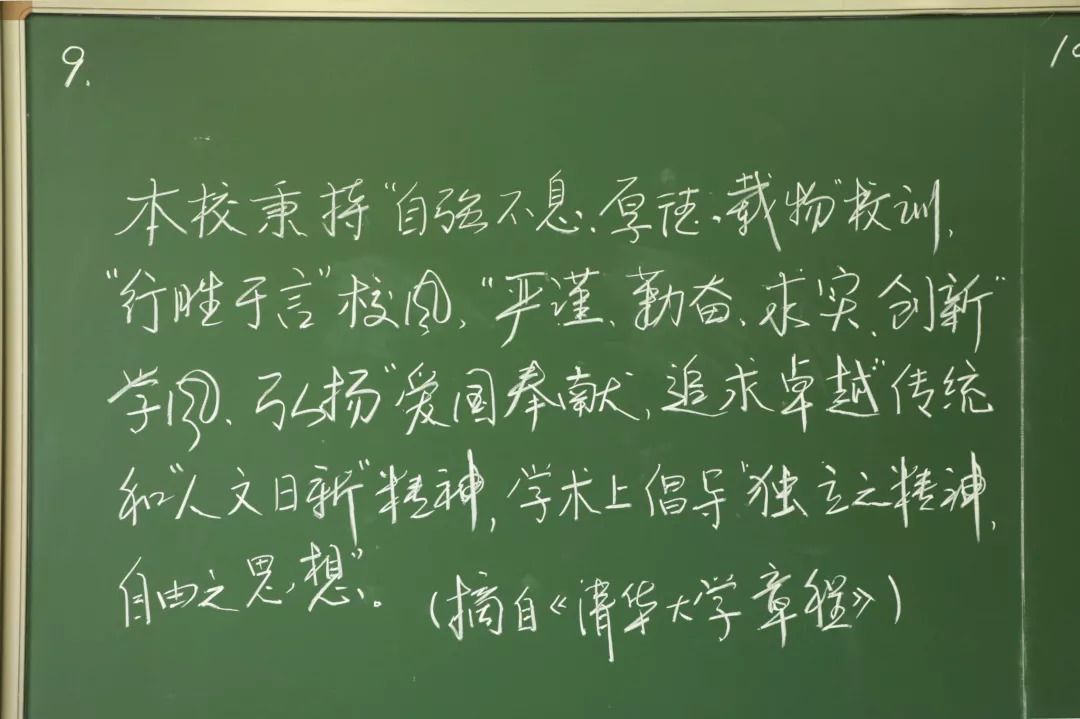 9.
本校秉持“自强不息、厚德载物”校训、
“行胜于言”校风、“严谨、勤奋、求实、创新”
学风、弘扬“爱国奉献、追求卓越”传统
和“人文日新”精神，学术上倡导“独立之精神，
自由之思想”。
（摘自《清华大学章程》）
10